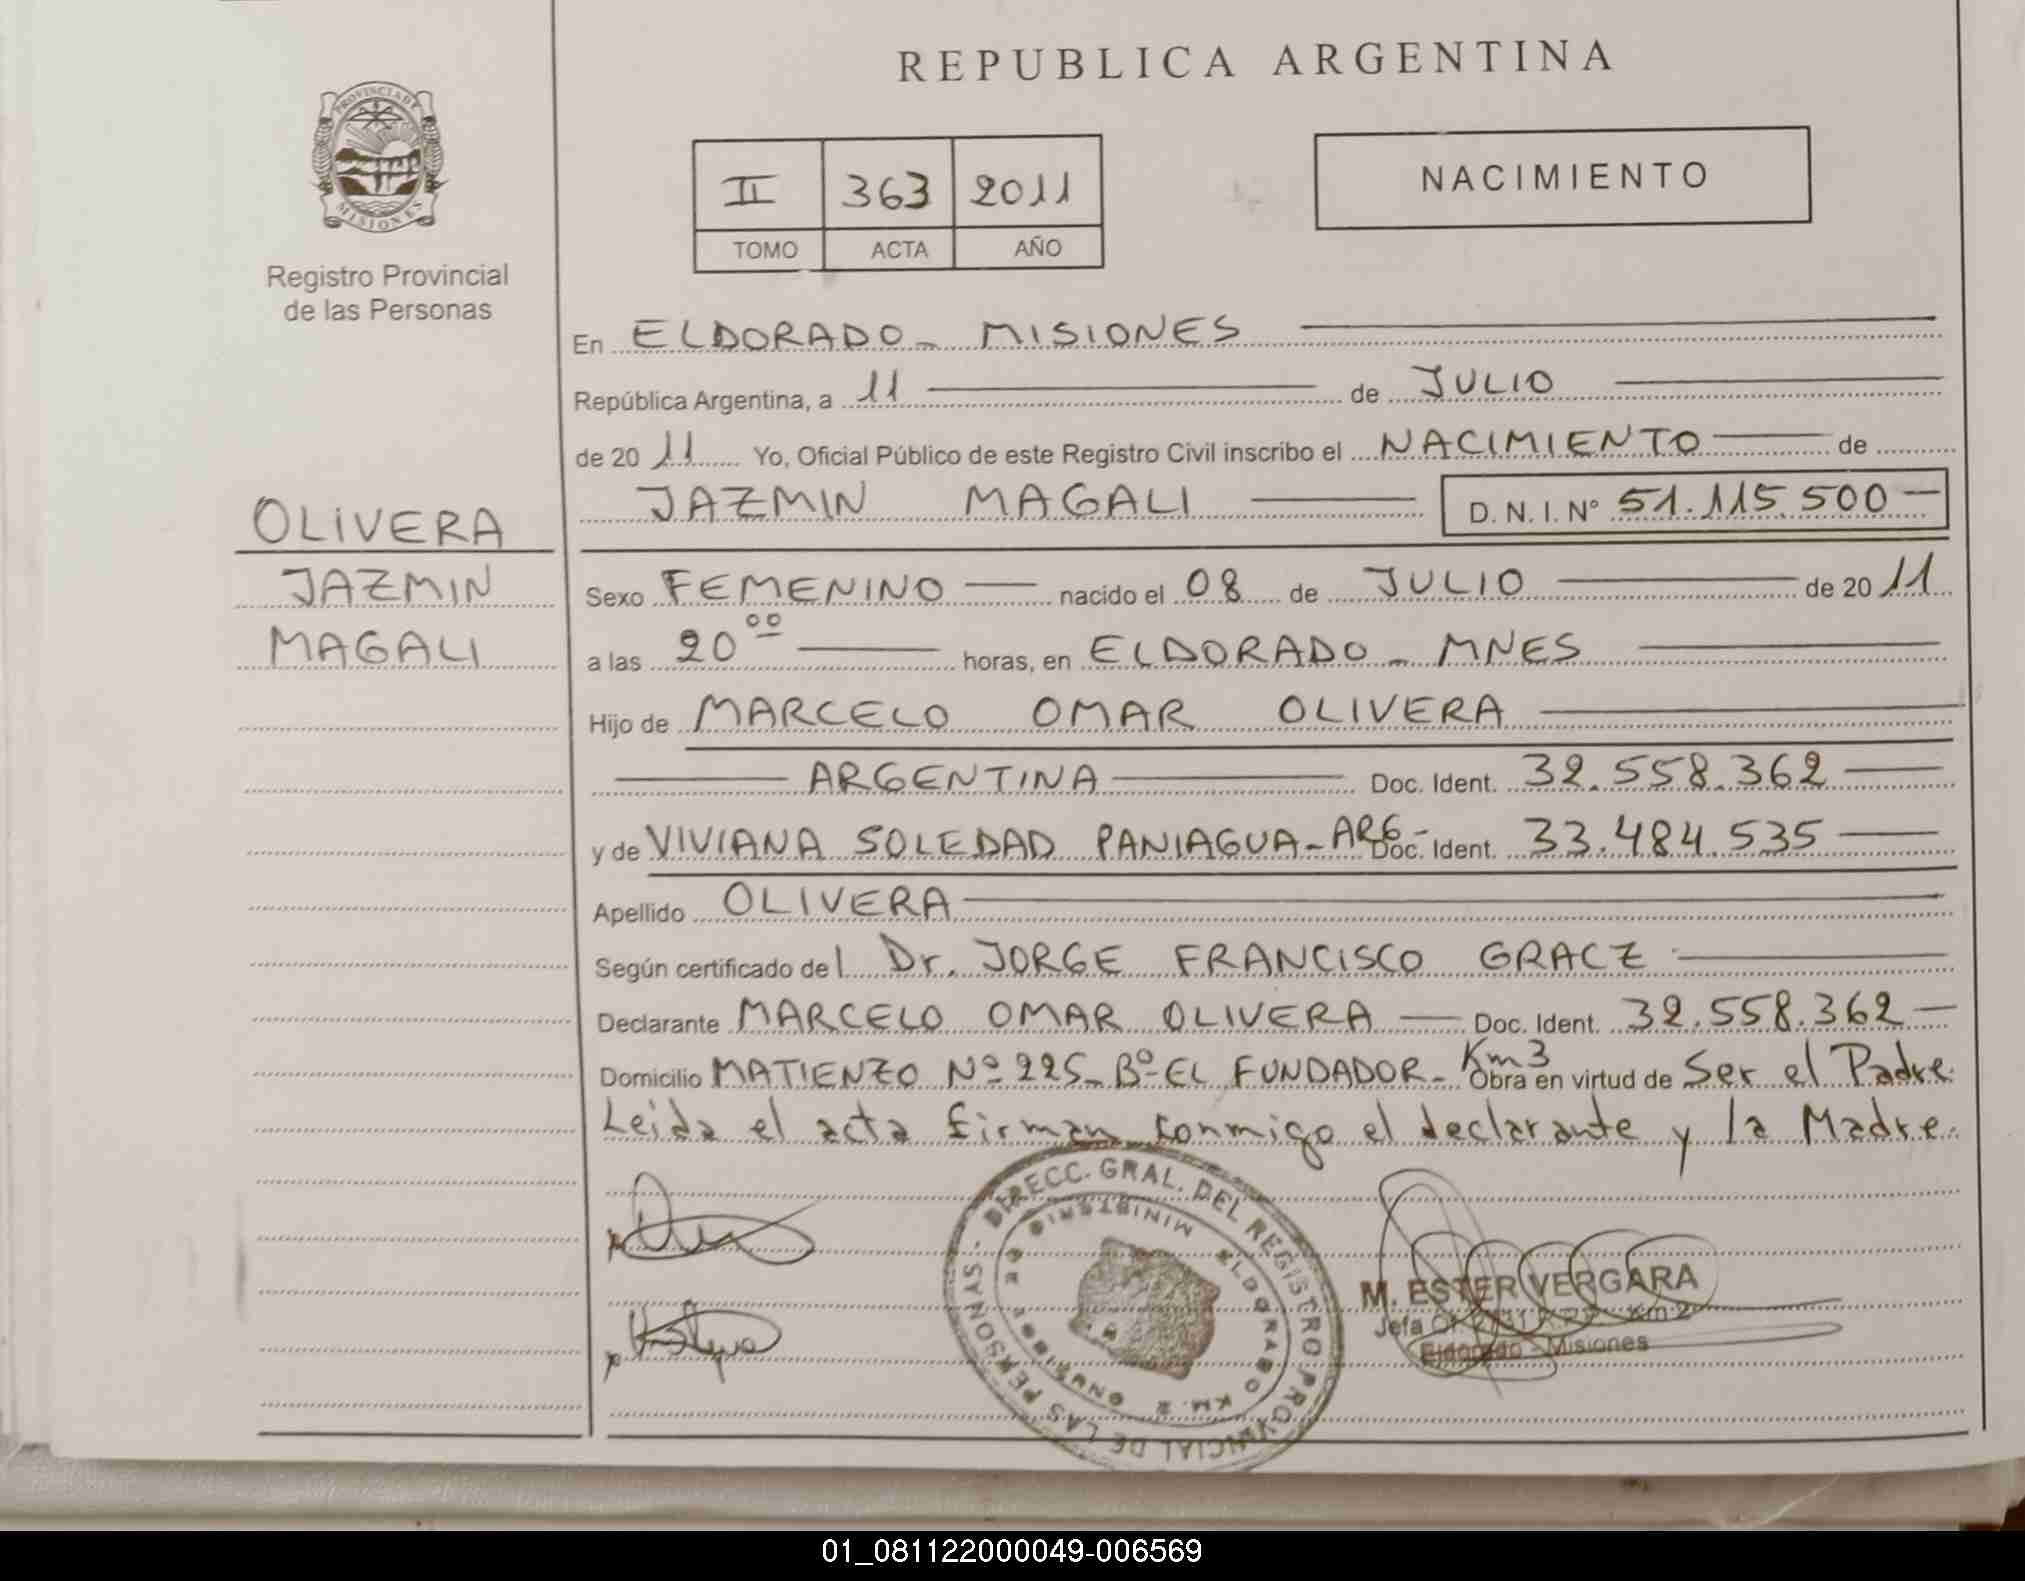 REPUBLICA ARGENTINA
PROVINCIA DE
MISIONES
Registro Provincial
de las Personas
II 363 2011
TOMO ACTA AÑO
NACIMIENTO
En ELDORADO - MISIONES
República Argentina, a 11 de JULIO
de 20 11 Yo, Oficial Público de este Registro Civil inscribo el NACIMIENTO de
JAZMIN MAGALI D. N. I. Nº 51.115.500
OLIVERA
JAZMIN
MAGALI
Sexo FEMENINO nacido el 08 de JULIO de 20 11
a las 20 00 horas, en ELDORADO - MNES
Hijo de MARCELO OMAR OLIVERA
ARGENTINA Doc. Ident. 32.558.362
y de VIVIANA SOLEDAD PANIAGUA - ARG - Doc. Ident. 33.484.535
Apellido OLIVERA
Según certificado del Dr. JORGE FRANCISCO GRACZ
Declarante MARCELO OMAR OLIVERA Doc. Ident. 32.558.362
Domicilio MATIENZO Nº 225 - Bº EL FUNDADOR - Km3 Obra en virtud de Ser el Padre.
Leida el acta firman conmigo el declarante y la Madre.
DIRECC. GRAL. DEL REGISTRO PROVINCIAL DE LAS PERSONAS -
MINISTERIO DE GOBIERNO
ELDORADO KM. 2
M. ESTER VERGARA
Jefa Km 2
Eldorado - Misiones
01_081122000049-006569